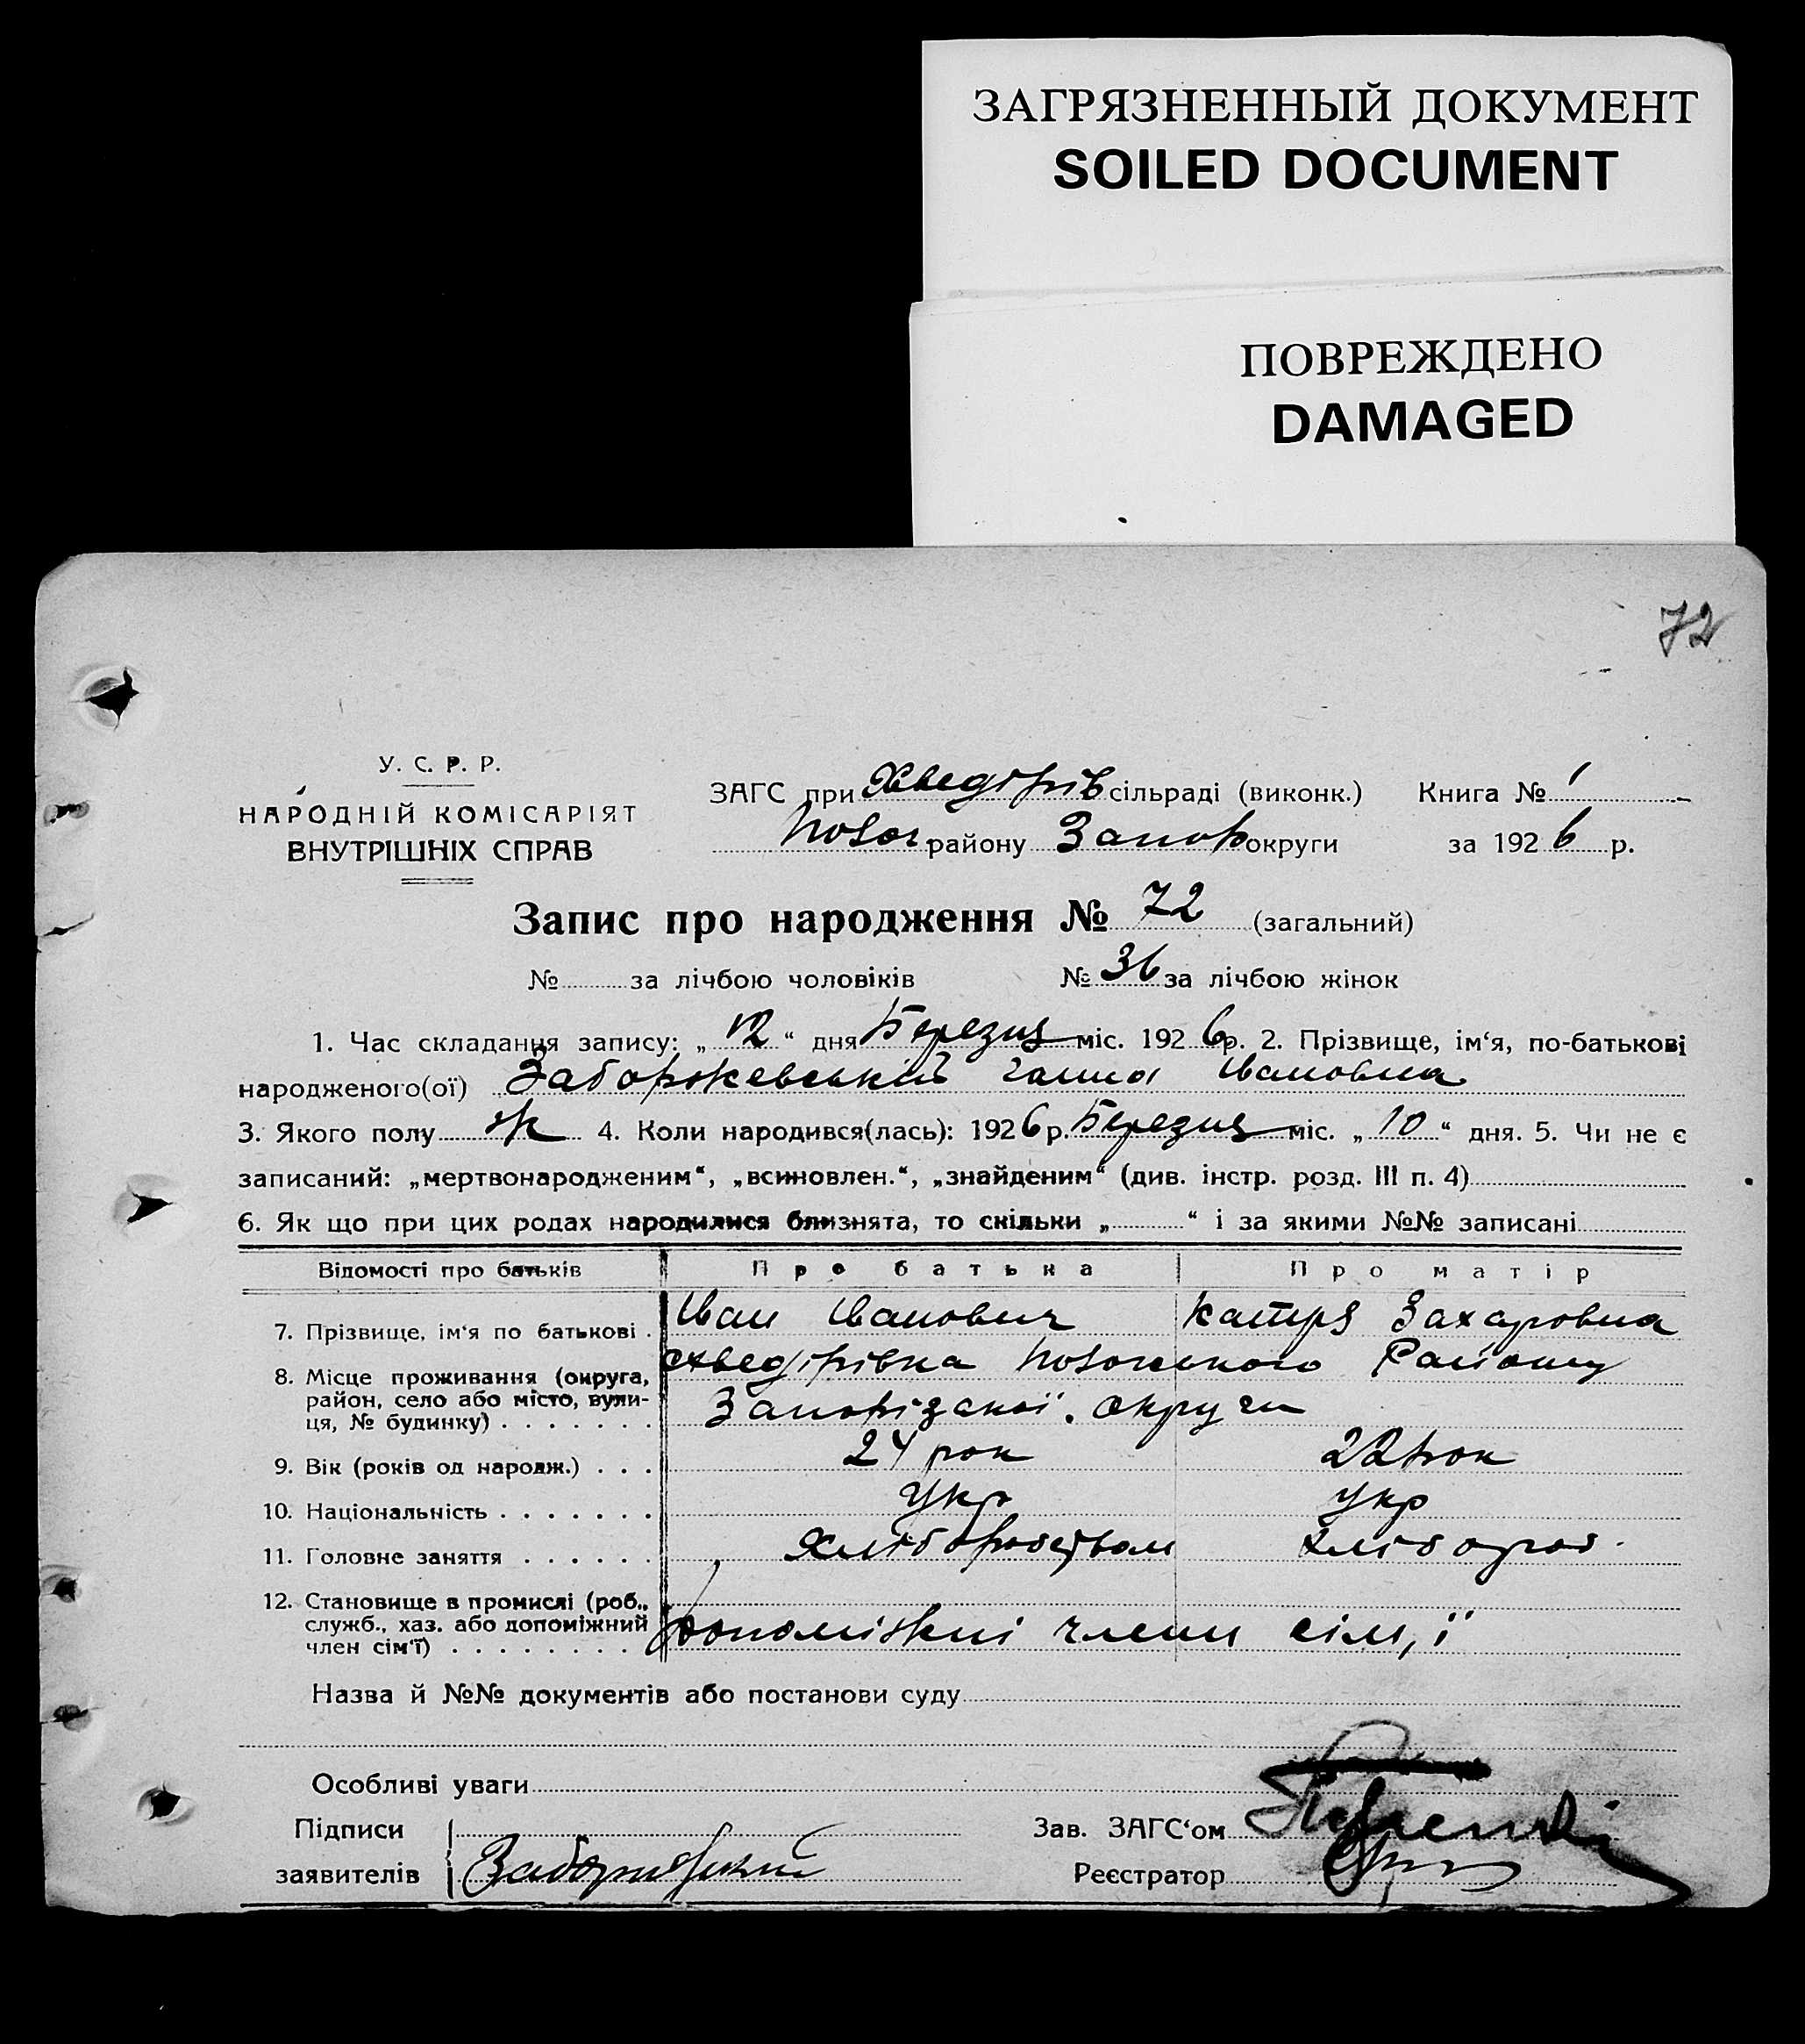 ЗАГРЯЗНЕННЫЙ ДОКУМЕНТ
SOILED DOCUMENT
ПОВРЕЖДЕНО
DAMAGED
72
У. С. Р. Р.
НАРОДНІЙ КОМІСАРІЯТ
ВНУТРІШНІХ СПРАВ
ЗАГС при Хведорів сільраді (виконк.) Книга № 1
району Запор округи за 1926 р.
Запис про народження № 72 (загальний)
№ за лічбою чоловіків № 36 за лічбою жінок
1. Час складання запису: „12“ дня Березня міс. 1926 р. 2. Прізвище, ім‘я, по-батькові
народженого(ої) Заборжевський Ганна Івановна
3. Якого полу ж 4. Коли народився(лась): 1926 р. Березня міс. „10“ дня. 5. Чи не є
записаний: „мертвонародженим“, „всиновлен.“, „знайденим“ (див. інстр. розд. III п. 4)
6. Як що при цих родах народилися близнята, то скільки „ “ і за якими №№ записані
Відомості про батьків Про батька Про матір
7. Прізвище, ім‘я по батькові . Іван Іванович Катря Захаровна
8. Місце проживання (округа, район, село або місто, вулиця, № будинку) . . . . . . . Району
Запорізької округи
9. Вік (років од народж.) . . . 24 рок 22 рок
10. Національність . . . . . . . Укр Укр
11. Головне заняття . . . . . . Хліборобством хлібороб.
12. Становище в промислі (роб., служб., хаз. або допоміжний член сім‘ї) . . . . . . . . Допоміжні члени сім,ї
Назва й №№ документів або постанови суду
Особливі уваги
Підписи
заявителів
Зав. ЗАГС‘ом
Реєстратор